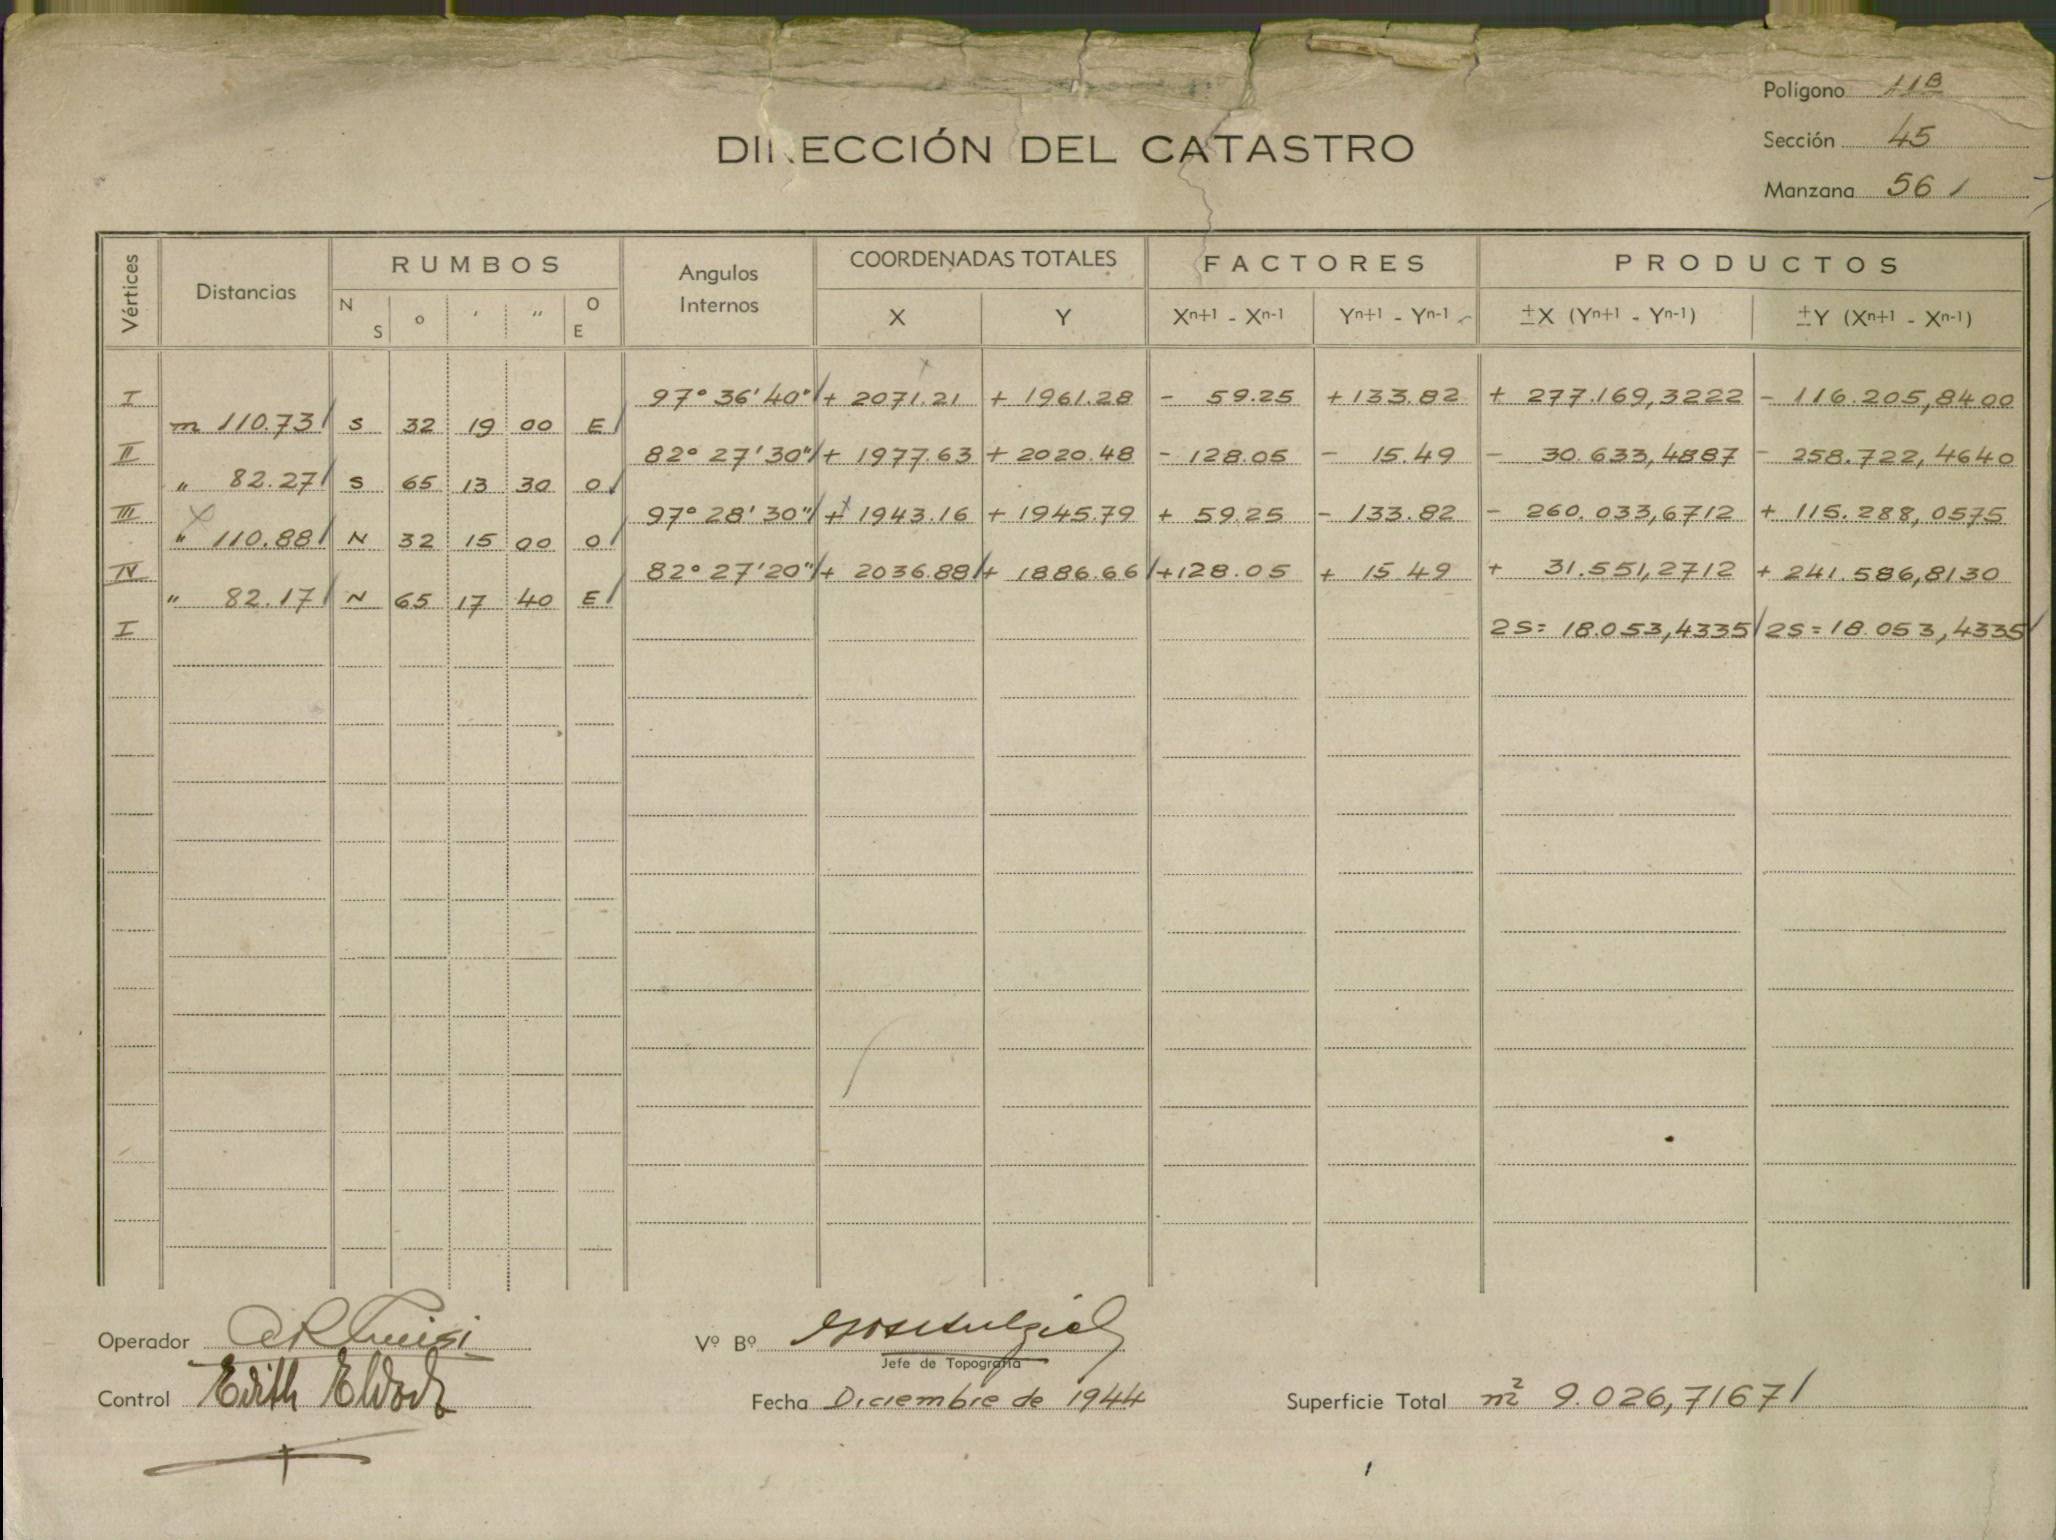 Polígono 11B
DIRECCIÓN DEL CATASTRO
Sección 45
Manzana 561
Vértices Distancias RUMBOS Angulos Internos COORDENADAS TOTALES FACTORES PRODUCTOS
N S o ' '' O E X Y Xn+1 - Xn-1 Yn+1 - Yn-1 ±X (Yn+1 - Yn-1) ±Y (Xn+1 - Xn-1)
I 97° 36' 40" + 2071.21 + 1961.28 - 59.25 +133.82 + 277.169,3222 - 116.205,8400
m 110.73 S 32 19 00 E
II 82° 27' 30" + 1977.63 + 2020.48 - 128.05 - 15.49 - 30.633,4887 - 258.722,4640
" 82.27 S 65 13 30 O
III 97° 28' 30" + 1943.16 + 1945.79 + 59.25 - 133.82 - 260.033,6712 + 115.288,0575
" 110.88 N 32 15 00 O
IV 82° 27' 20" + 2036.88 + 1886.66 +128.05 + 15.49 + 31.551,2712 + 241.586,8130
" 82.17 N 65 17 40 E
I 2S= 18.053,4335 2S=18.053,4335
Operador
Vº Bº
Jefe de Topografía
Control Edith
Fecha Diciembre de 1944
Superficie Total m² 9.026,7167